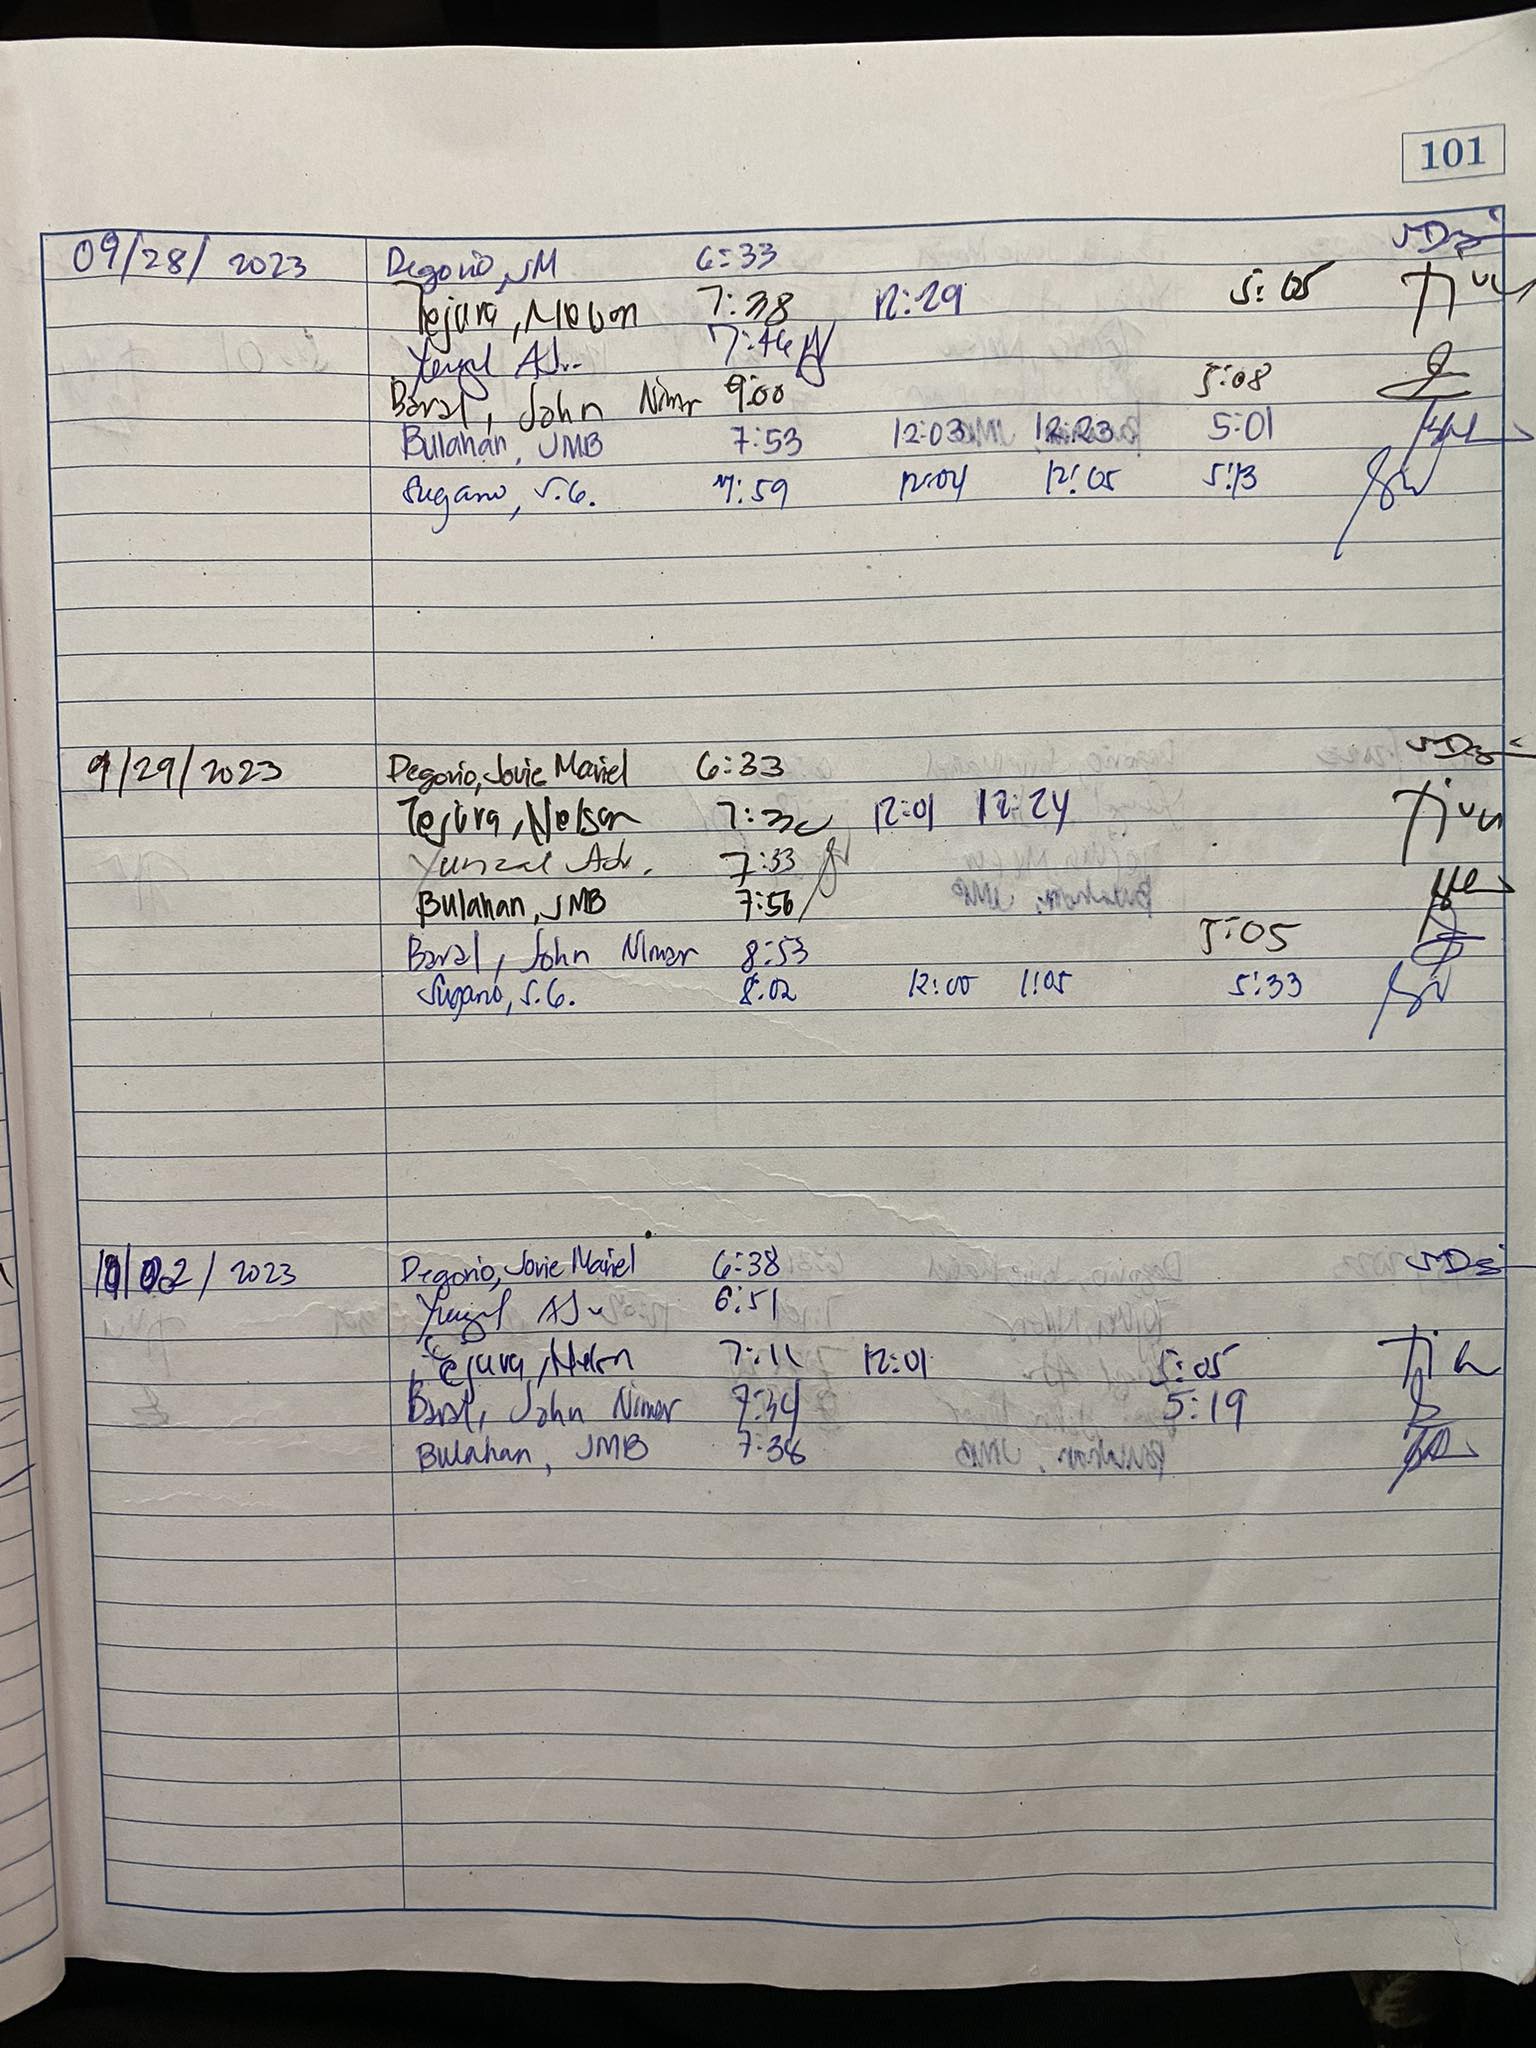 101
09/28/2023 Degorio, JM 6:33
Tejura, Nelson 7:38 12:29 5:05
7:46
Baral, John Nimar 9:00 5:08
Bulahan, JMB 7:53 12:03 12:23 5:01
Sugano, S.G. 7:59 12:04 12:05 5:13
9/29/2023 Degorio, Jovie Mariel 6:33
Tejura, Nelson 12:01 12:24
Yunzal Adr. 7:33
Bulahan, JMB 7:56
Baral, John Nimar 8:53 5:05
Sugano, S.G. 8:02 12:00 1:05 5:33
10/02/2023 Degorio, Jovie Mariel 6:38
6:51
Tejura, Nelson 7:11 12:01 5:05
Baral, John Nimar 7:34 5:19
Bulahan, JMB 7:38